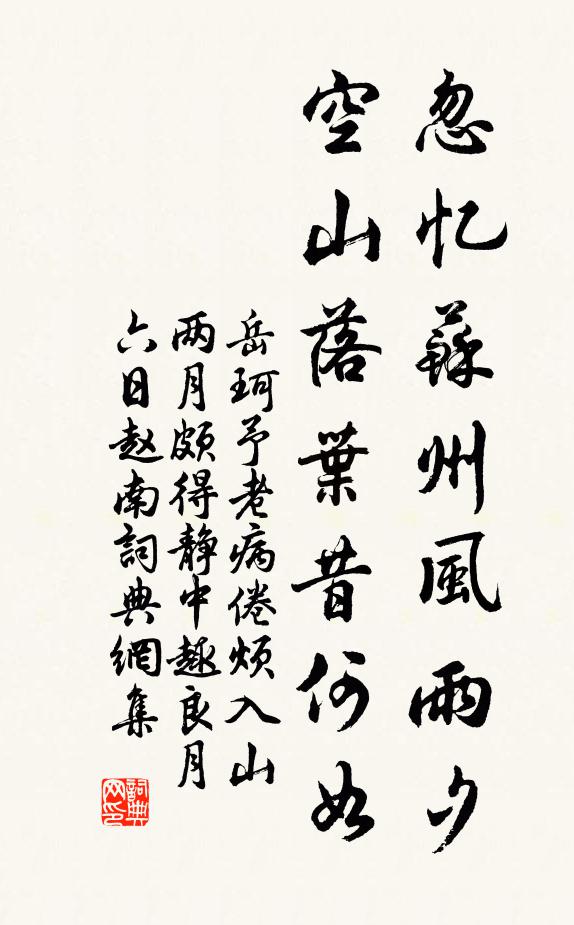 忽忆蘇州風雨夕
空山落葉昔何如
岳珂予老病倦煩入山
两月颇得静中趣良月
六日赵南詞典網集
詞典
网印